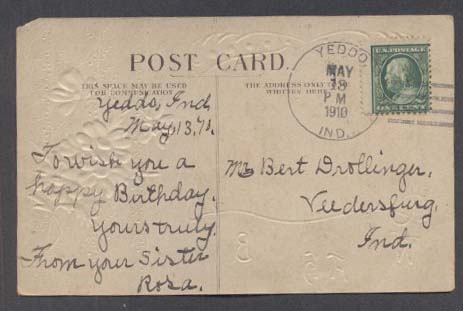 POST CARD.
THIS SPACE MAY BE USED
FOR COMMUNICATION
THE ADDRESS ONLY
WRITTEN HERE
Yeddo, Ind.
May, 13,
To wish you a
happy Birthday.
Yours truly.
From your Sister
Rosa.
YEDDO
MAY
13
P M
1910
IND.
U.S. POSTAGE
ONE CENT
Mr Bert Drollinger,
Veedersburg,
Ind.